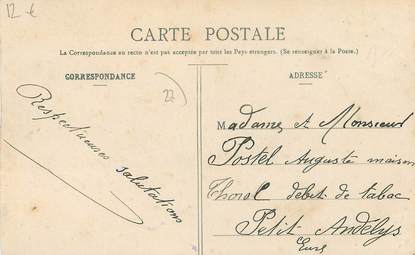 12 €
CARTE POSTALE
La Correspondance au recto n'est pas acceptée par tous les Pays étrangers. (Se renseigner à la Poste.)
CORRESPONDANCE
ADRESSE
27
Respectueuses salutations
Madame et Monsieur
Postel Auguste maison
Thorel débit de tabac
Petit Andelys
Eure